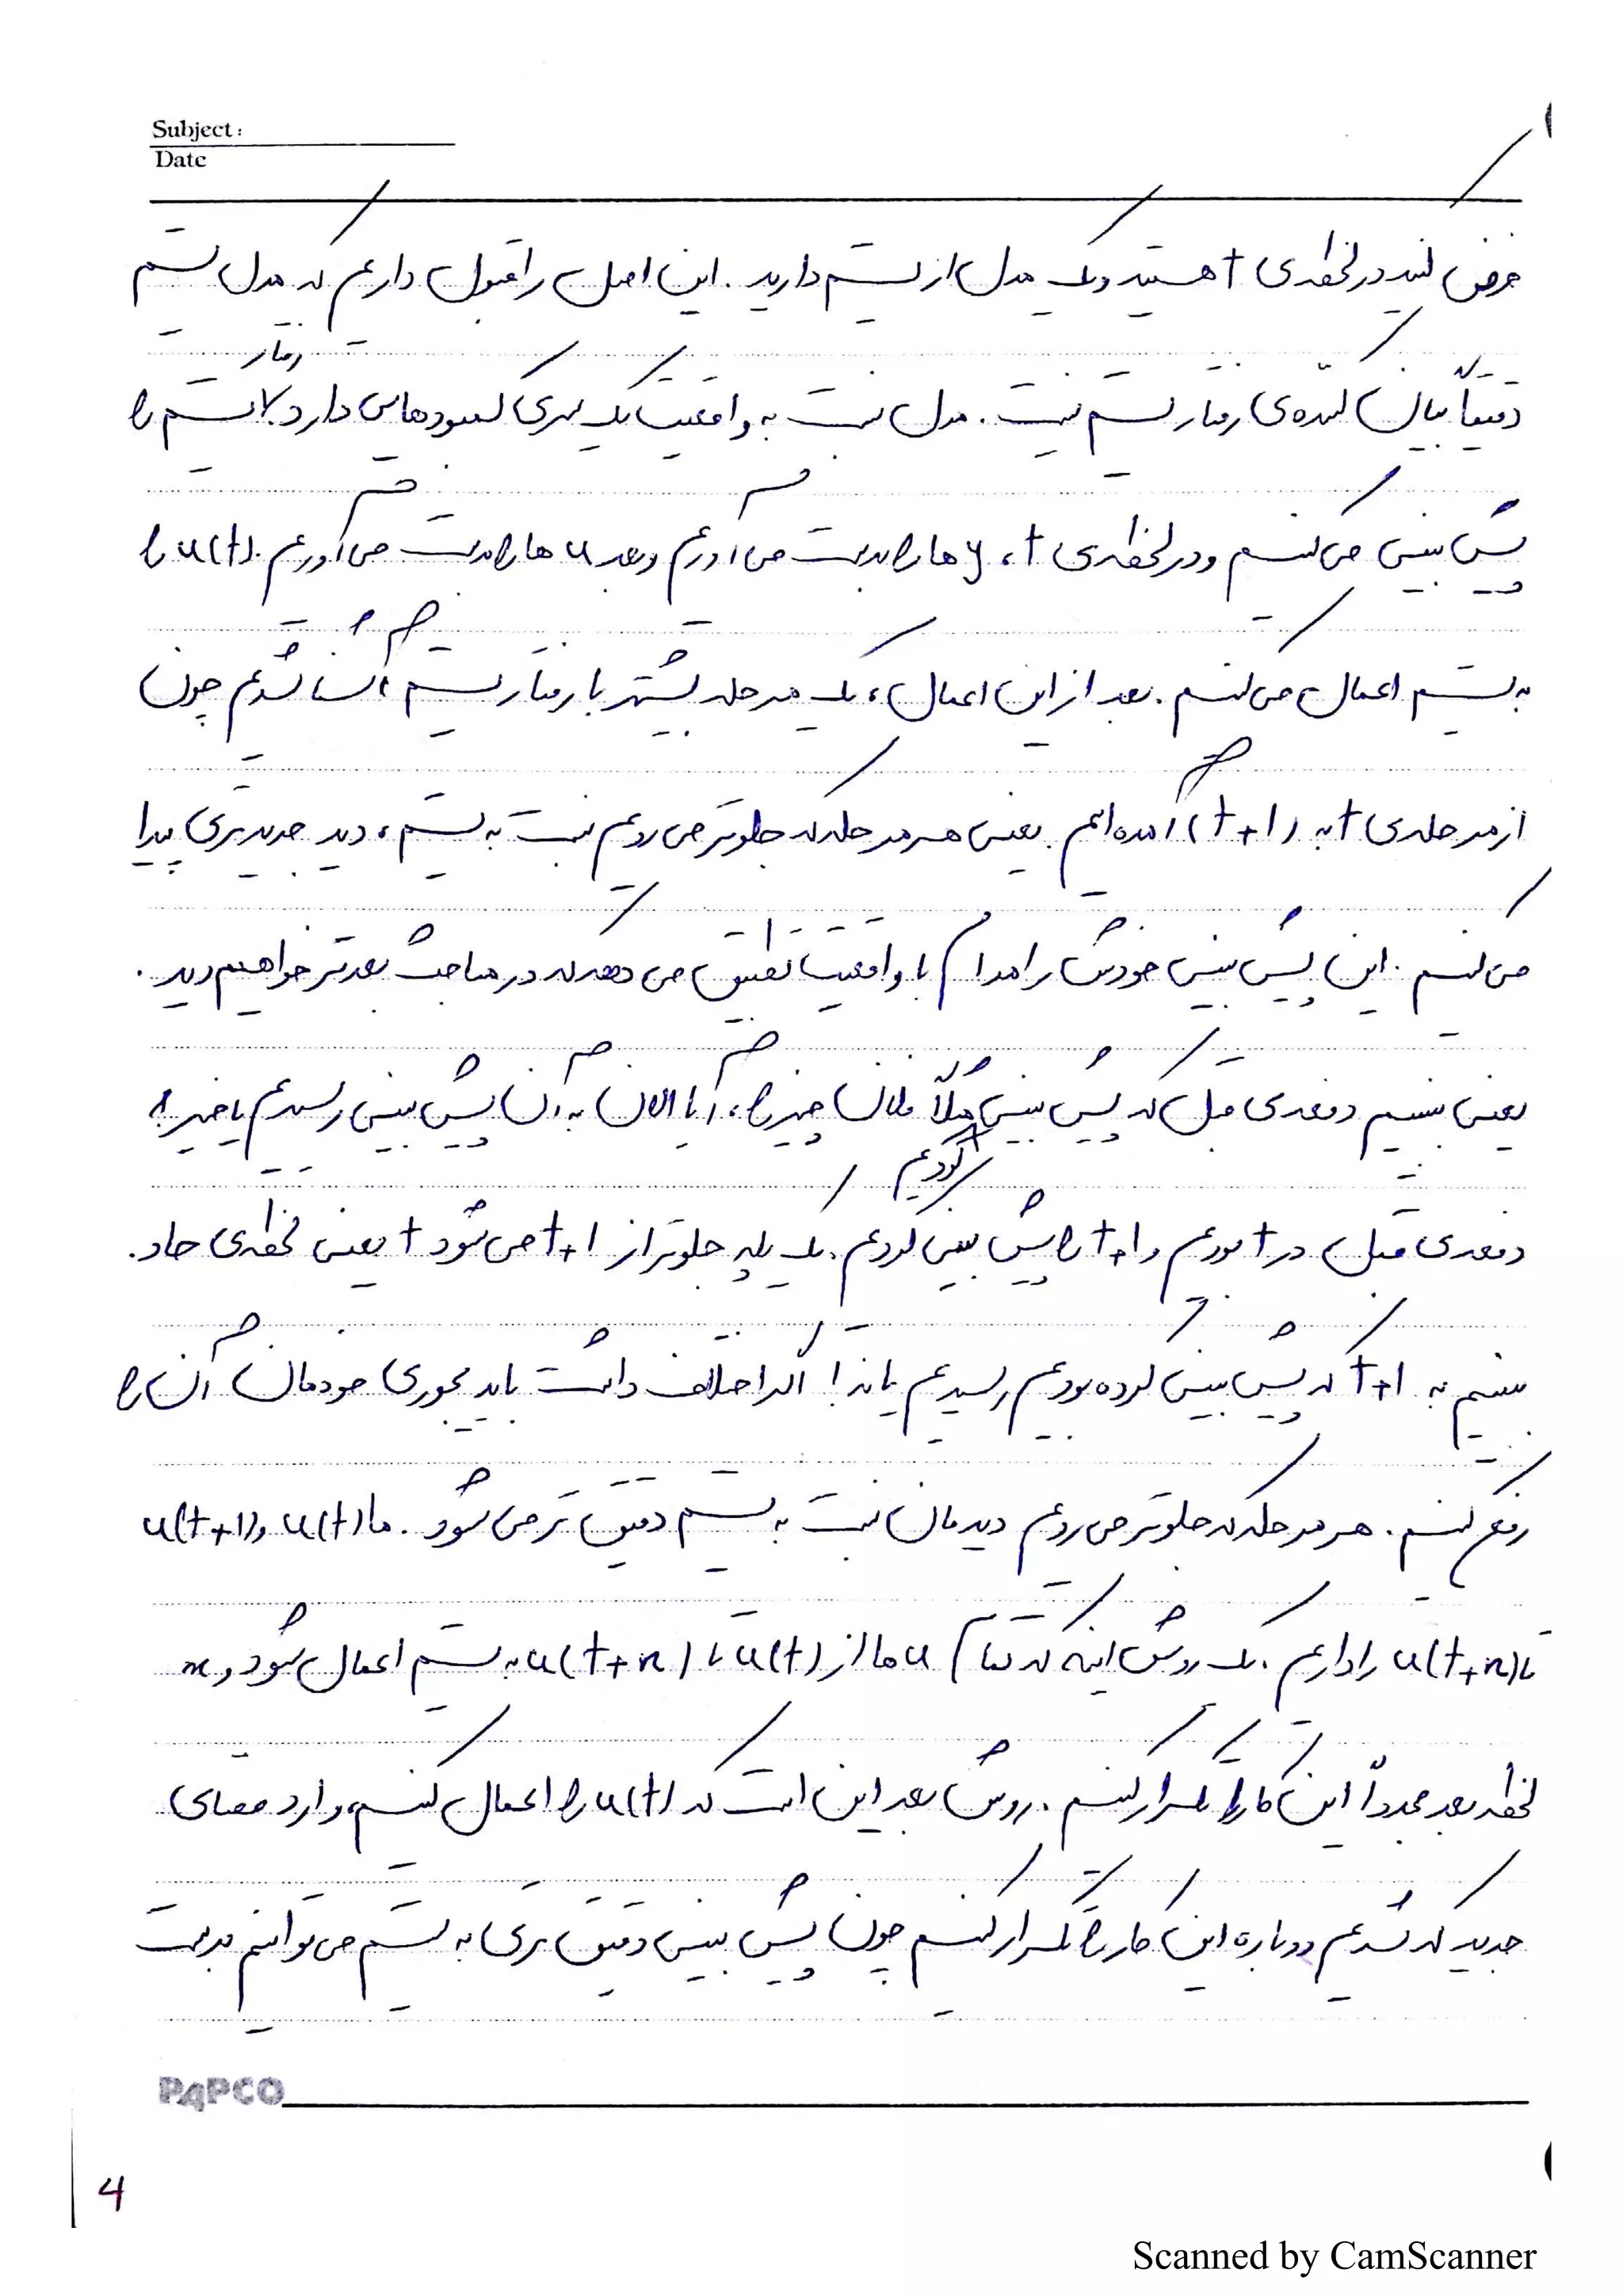 Subject:
Date
فرض کنید در لحظه‌ی t هستید و یک مدل از سیستم دارید. این اصل را قبول داریم که مدل سیستم
دقیقاً بیان کننده‌ی رفتار سیستم نیست. مدل نسبت به واقعیت یک سری کمبودهایی دارد. رفتار سیستم را
پیش بینی می‌کنیم و در لحظه‌ی t، y ها را بدست می‌آوریم و بعد u ها را بدست می‌آوریم. u(t) را
به سیستم اعمال می‌کنیم. بعد از این اعمال، یک مرحله بیشتر با رفتار سیستم آشنا شدیم چون
از مرحله‌ی t به (t+1) آمده‌ایم. یعنی هر مرحله که جلوتر می‌رویم نسبت به سیستم، دید جدیدتری پیدا
می‌کنیم. این پیش بینی خودش را مدام با واقعیت تطبیق می‌دهد که در مباحث بعدتر خواهیم دید.
یعنی ببینیم دفعه‌ی قبل که پیش بینی کردیم مثلاً فلان چیز را، آیا الان به آن پیش بینی رسیدیم یا خیر؟
دفعه‌ی قبل در t بودیم و t+1 را پیش بینی کردیم. یک پله جلوتر از t+1 می‌شود t یعنی لحظه‌ی حاد.
ببینیم به t+1 که پیش بینی کرده بودیم رسیدیم یا نه! اگر اختلاف داشت باید یجوری خودمان آن را
رفع کنیم. هر مرحله که جلوتر می‌رویم دیدمان نسبت به سیستم دقیق تر می‌شود. ما u(t) و u(t+1)
تا u(t+n) را داریم. یک روش اینه که تمام u ها از u(t) تا u(t+n) به سیستم اعمال شود و n
لحظه بعد مجدداً این کار را تکرار کنیم. روش بعد این است که u(t) را اعمال کنیم، وارد فضای
جدید که شدیم دوباره این کار را تکرار کنیم چون پیش بینی دقیق تری به سیستم می‌توانیم بدست
PAPCO
4
Scanned by CamScanner